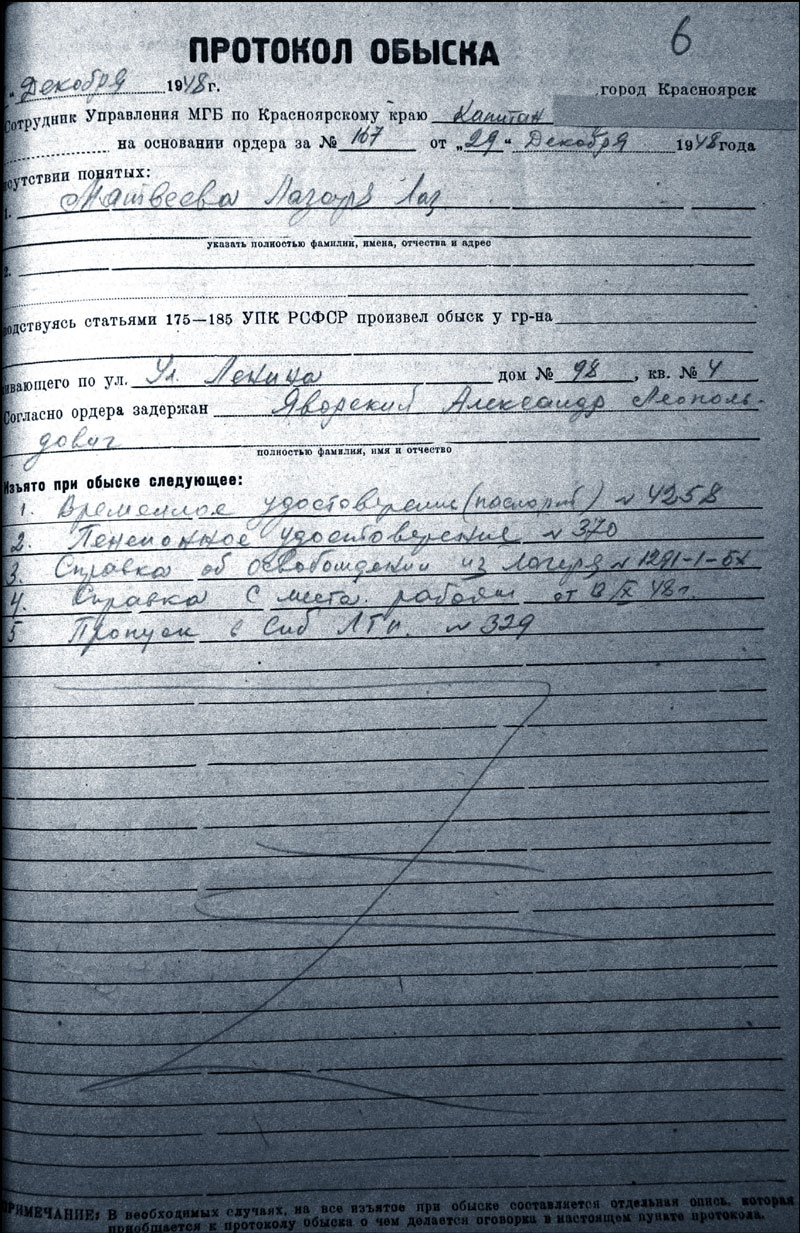 6
ПРОТОКОЛ ОБЫСКА
" Декабря 1948 г. город Красноярск
Сотрудник Управления МГБ по Красноярскому краю Капитан
на основании ордера за № 167 от „29" Декабря 1948 года
сутствии понятых:
1. Матвеева Лазаря Лаз
указать полностью фамилии, имена, отчества и адрес
2.
одствуясь статьями 175—185 УПК РСФСР произвел обыск у гр-на
ивающего по ул. Ул. Ленина дом № 98, кв. № 4
Согласно ордера задержан Яворский Александр Леополь-
дович
полностью фамилия, имя и отчество
Изъято при обыске следующее:
1. Временное удостоверение (паспорт) № 4258
2. Пенсионное удостоверение № 370
3. Справка об освобождении из лагеря № 1291-1-
4. Справка с места работы от IX 48 г.
5 Пропуск в Сиб ЛТИ. № 329
РИМЕЧАНИЕ: В необходимых случаях, на все изъятое при обыске составляется отдельная опись, которая
приобщается к протоколу обыска о чем делается оговорка в настоящем пункте протокола.